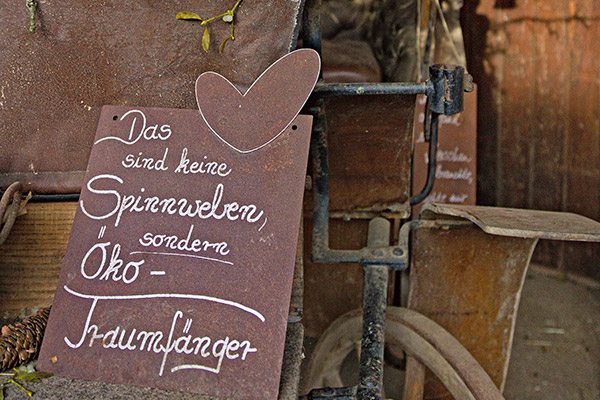 Das
sind keine
Spinnweben,
sondern
Öko-
Traumfänger